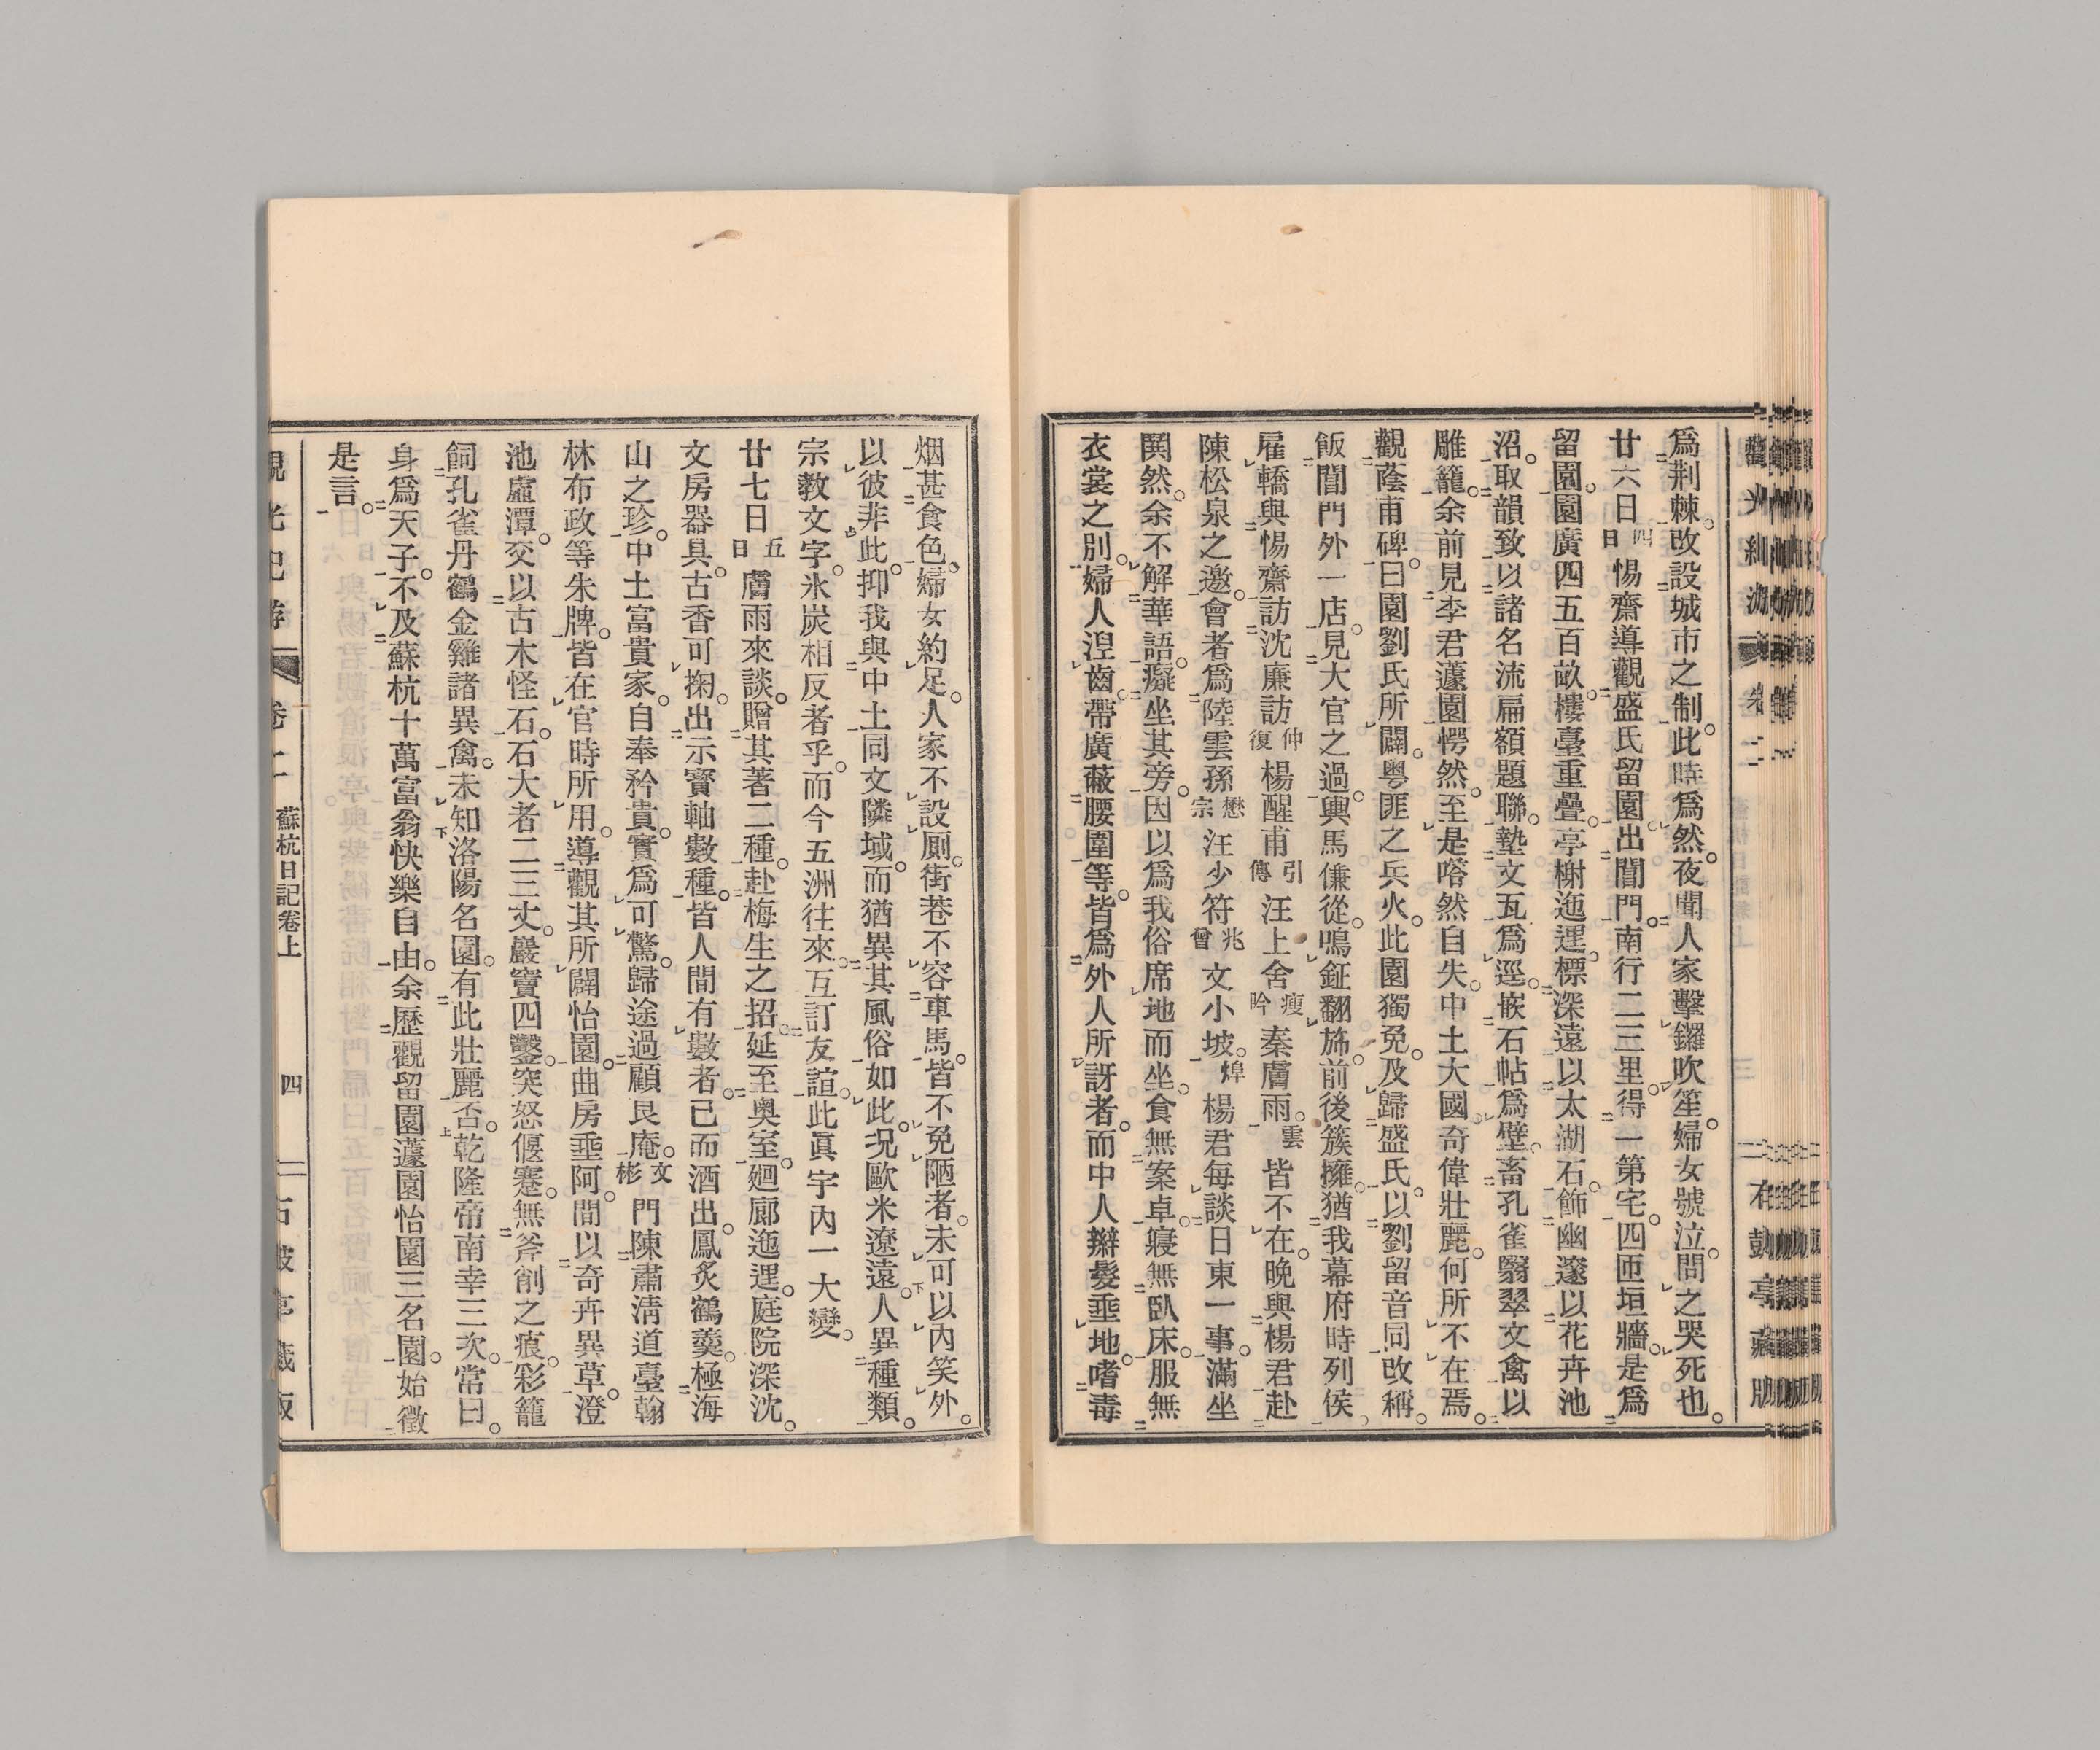 爲荆棘。改設城市之制。此時爲然。夜聞人家擊鑼吹笙。婦女號泣。問之哭死也。
廿六日四日惕齋導觀盛氏留園。出閶門。南行二三里。得一第宅。四匝垣牆。是爲
留園。園廣四五百畝。樓臺重疊。亭榭迤邐。標深遠以太湖石。飾幽邃以花卉池
沼。取韻致以諸名流扁額題聯。墊文瓦爲逕。嵌石帖爲壁。畜孔雀翳翠文禽以
雕籠。余前見李君蘧園愕然。至是嗒然自失。中土大國奇偉壯麗。何所不在焉。
觀蔭甫碑。曰園劉氏所闢。粤匪之兵火。此園獨免。及歸盛氏。以劉留音同改稱。
飯閶門外一店。見大官之過。輿馬傔從。鳴鉦翻旆。前後簇擁。猶我幕府時列侯。
雇轎與惕齋訪沈廉訪仲復楊醒甫引傳汪上舍瘦吟秦膚雨。雲皆不在。晩與楊君赴
陳松泉之邀。會者爲陸雲孫懋宗汪少符兆曾文小坡。焞楊君每談日東一事。滿坐
鬨然。余不解華語。癡坐其旁。因以爲我俗席地而坐。食無案卓。寢無臥床。服無
衣裳之別。婦人涅齒。帶廣蔽腰圍等。皆爲外人所訝者。而中人辮髮垂地。嗜毒
烟甚食色。婦女約足。人家不設厠。街巷不容車馬。皆不免陋者。未可以内笑外。
以彼非此。抑我與中土同文隣域。而猶異其風俗如此。况歐米遼遠。人異種類。
宗教文字。氷炭相反者乎。而今五洲往來。互訂友誼。此眞宇内一大變。
廿七日五日膚雨來談。贈其著二種。赴梅生之招。延至奥室。廻廊迤邐。庭院深沈。
文房器具。古香可掬。出示寳軸數種。皆人間有數者。已而酒出。鳳炙鶴羹。極海
山之珍。中土富貴家。自奉矜貴。實爲可驚。歸途過顧艮庵。文彬門陳肅淸道臺翰
林布政等朱牌。皆在官時所用。導觀其所闢怡園。曲房垂阿。間以奇卉異草。澄
池盧潭。交以古木怪石。石大者二三丈。巖竇四鑿。突怒偃蹇。無斧削之痕。彩籠
飼孔雀丹鶴金雞諸異禽。未知洛陽名園。有此壯麗否。乾隆帝南幸三次。常曰。
身爲天子。不及蘇杭十萬富翁快樂自由。余歷觀留園蘧園怡園三名園。始徵
是言。
蘇杭日記卷上
四